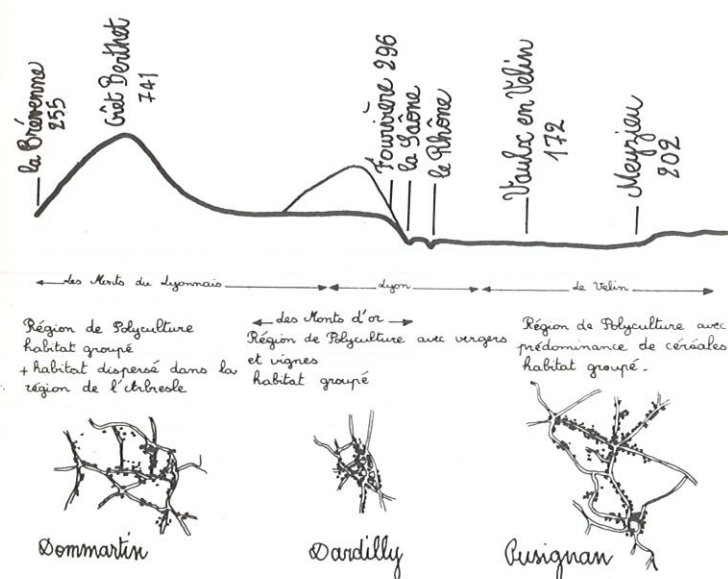 la Brévenne
255
Crêt Berthet
741
Fourvière 296
la Saône
le Rhône
Vaulx en Velin
172
Meyzieu
202
Les Monts du Lyonnais
Lyon
Le Velin
Les Monts d'or
Région de Polyculture
habitat groupé
+ habitat dispersé dans la
région de l'Arbresle
Région de Polyculture avec vergers
et vignes
habitat groupé
Région de Polyculture avec
prédominance de céréales
habitat groupé.
Dommartin
Dardilly
Pusignan